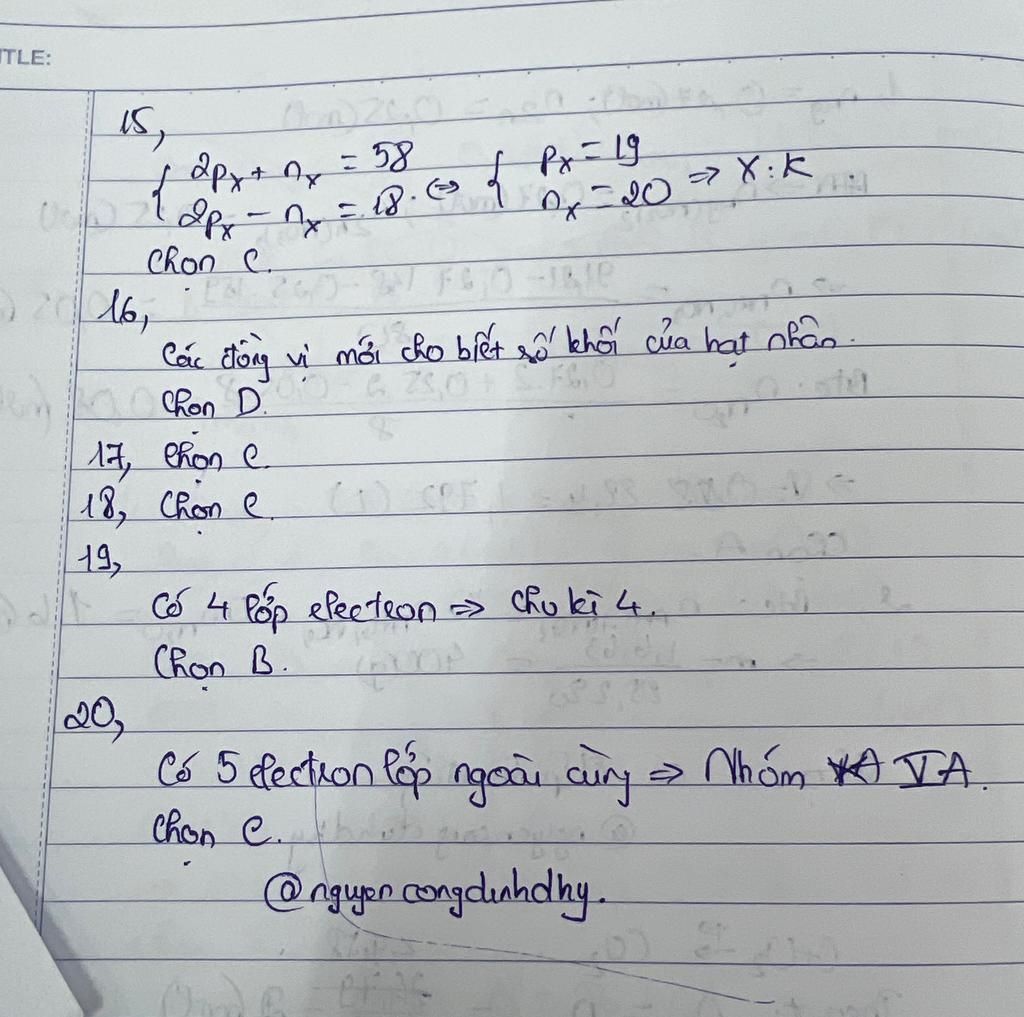 TLE:
15,
{ 2pₓ + nₓ = 58
2pₓ - nₓ = 18. ⇔ { pₓ = 19
nₓ = 20 ⇒ X : K.
Chọn C.
16,
Các đồng vị mới cho biết số khối của hạt nhân.
Chọn D.
17, Chọn C.
18, Chọn C.
19,
Có 4 lớp electron ⇒ chu kì 4.
Chọn B.
20,
Có 5 electron lớp ngoài cùng ⇒ Nhóm VA.
Chọn C.
@nguyencongdinhdhy.